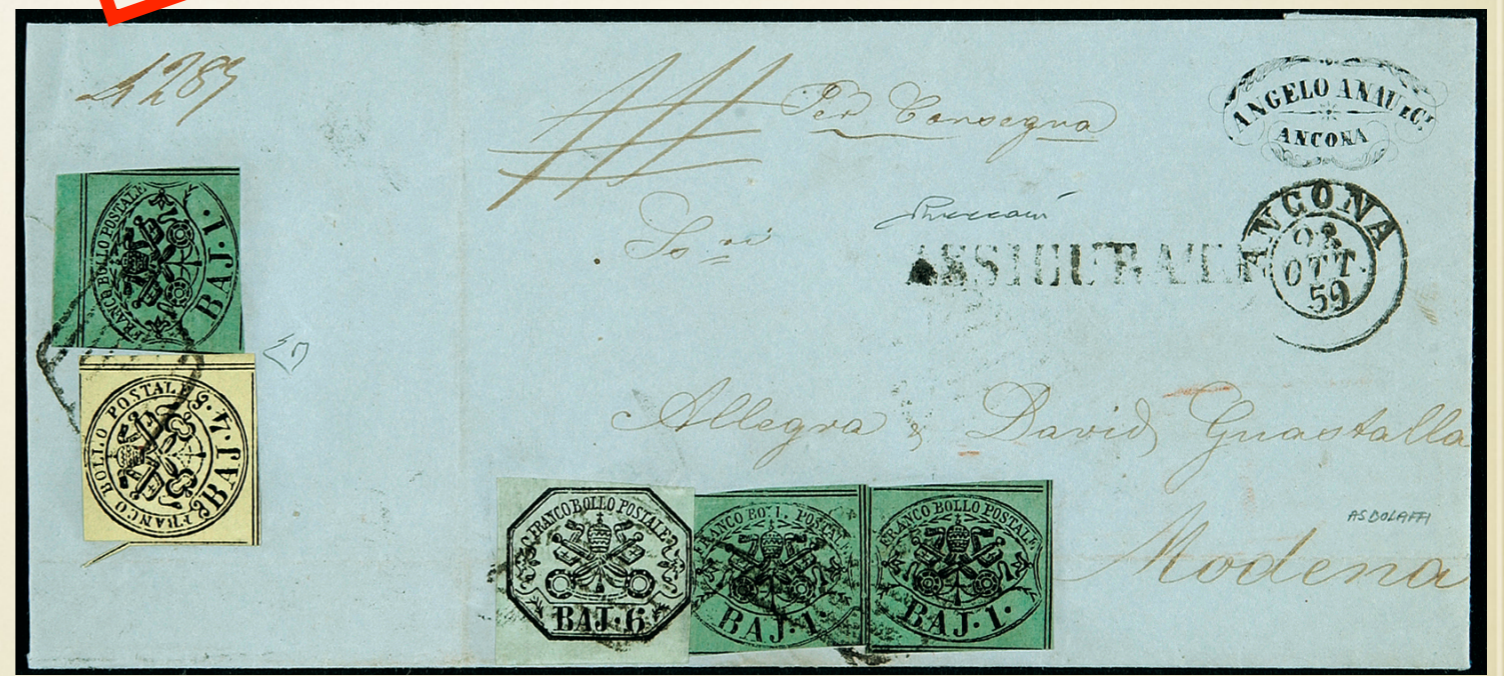 4283
Per Consegna
ANGELO ANAU e C.
ANCONA
ASSICURATA
ANCONA
OTT.
59
FRANCO BOLLO POSTALE
BAJ. 1.
FRANCO BOLLO POSTALE
BAJ. 4.5
Allegra & David Guastalla
FRANCO BOLLO POSTALE
BAJ. 6
FRANCO BOLLO POSTALE
BAJ. 1.
FRANCO BOLLO POSTALE
BAJ. 1.
ASBOLAFFI
Modena